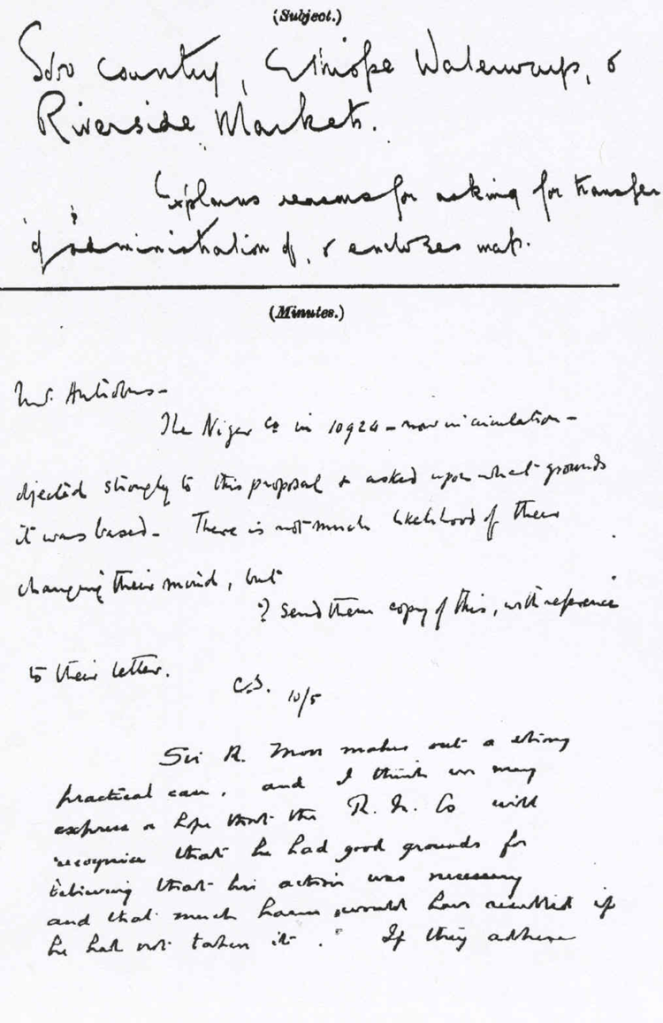 (Subject.)
Sobo Country, Ethiope Waterways, &
Riverside Markets.
Explains reasons for asking for transfer
of administration of, & encloses map.
(Minutes.)
Mr. Antrobus –
The Niger Co in 10924 – now in circulation –
objected strongly to this proposal & asked upon what grounds
it was based – There is not much likelihood of their
changing their mind, but
? send them copy of this, with reference
to their letter.
C.S. 10/5
Sir R. Moor makes out a strong
practical case, and I think we may
express a hope that the R. N. Co will
recognise that he had good grounds for
believing that his action was necessary
and that much harm would have resulted if
he had not taken it. If they adhere